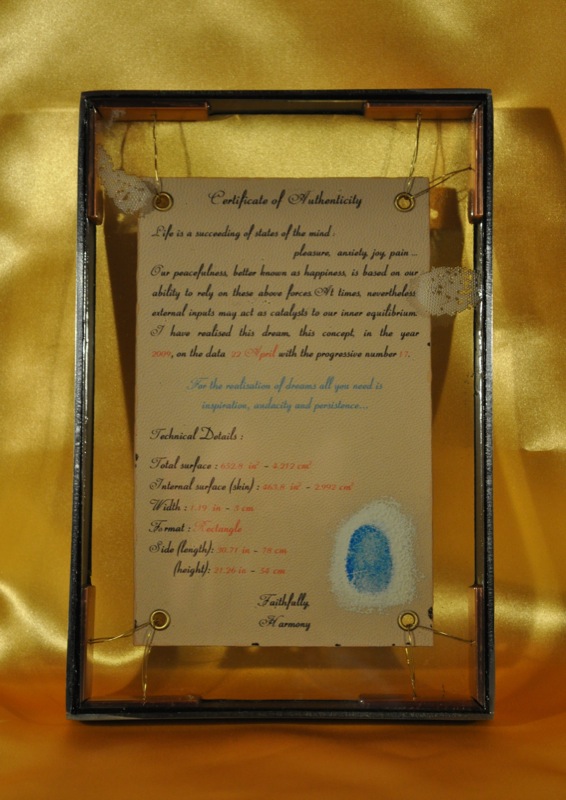 Certificate of Authenticity
Life is a succeeding of states of the mind :
pleasure, anxiety, joy, pain ...
Our peacefulness, better known as happiness, is based on our
ability to rely on these above forces. At times, nevertheless
external inputs may act as catalysts to our inner equilibrium.
I have realised this dream, this concept, in the year
2009, on the data 22 April with the progressive number 17.
For the realisation of dreams all you need is
inspiration, audacity and persistence...
Technical Details :
Total surface : 652.8 in² - 4.212 cm²
Internal surface (skin) : 463.8 in² - 2.992 cm²
Width : 1.19 in - 3 cm
Format : Rectangle
Side (length): 30.71 in - 78 cm
(height): 21.26 in - 54 cm
Faithfully,
Harmony